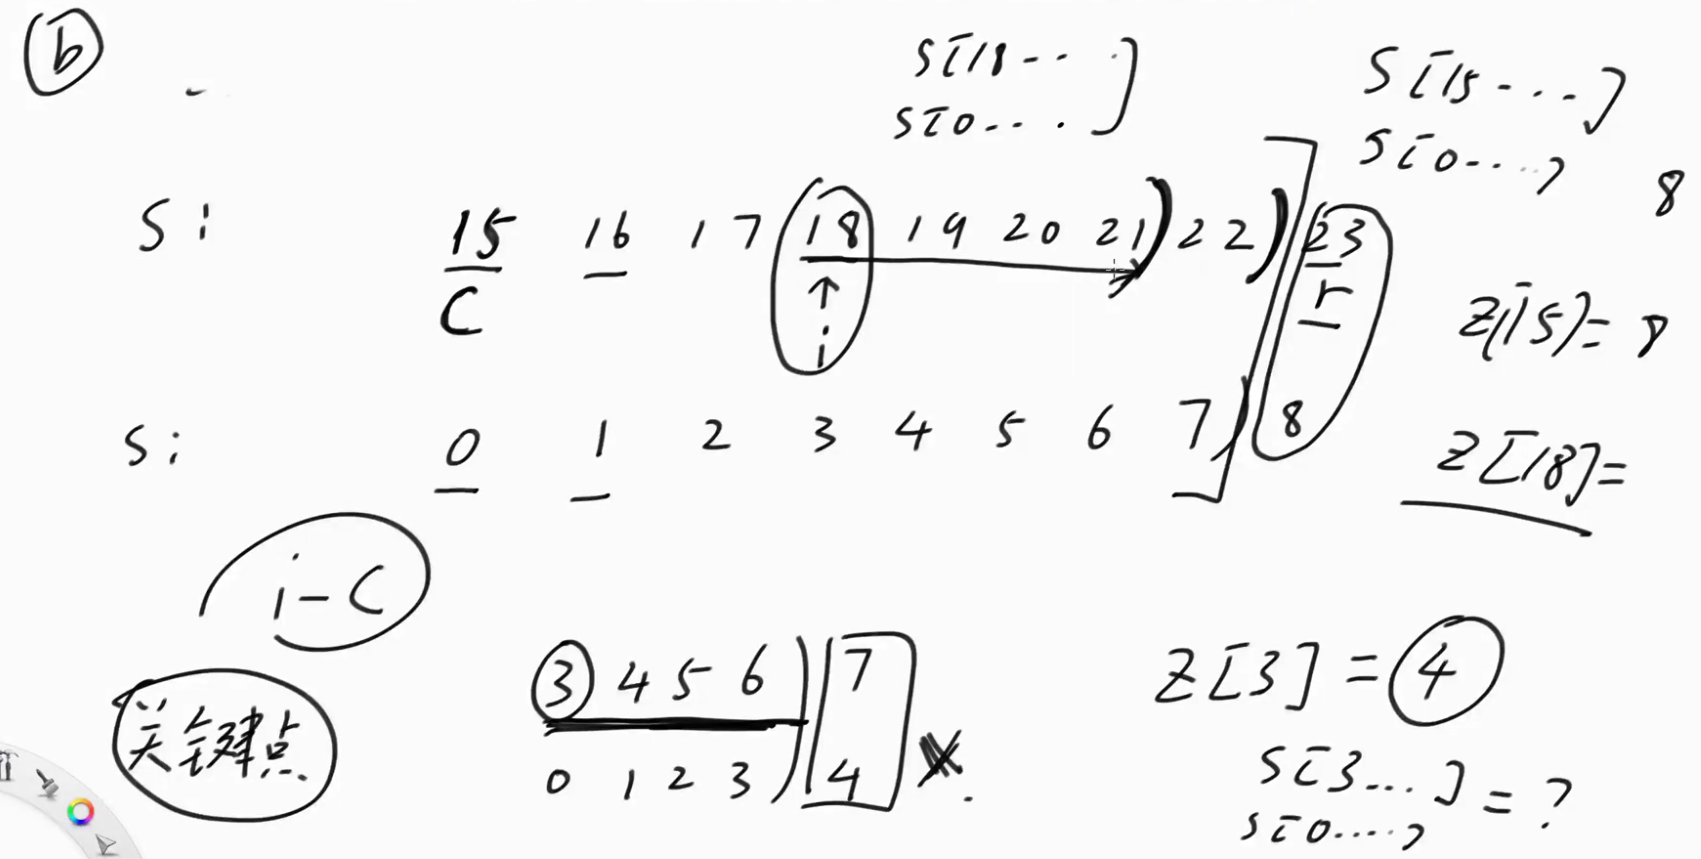 b
S[18... ]
S[0... ]
S[15....]
S[0....]
8
S: 15 16 17 18 19 20 21) 22) 23
C ↑ r
i
Z[15]= 8
S: 0 1 2 3 4 5 6 7) 8
Z[18]=
i-C
关键点
3 4 5 6) 7
0 1 2 3) 4
Z[3] = 4
S[3...] = ?
S[0....]